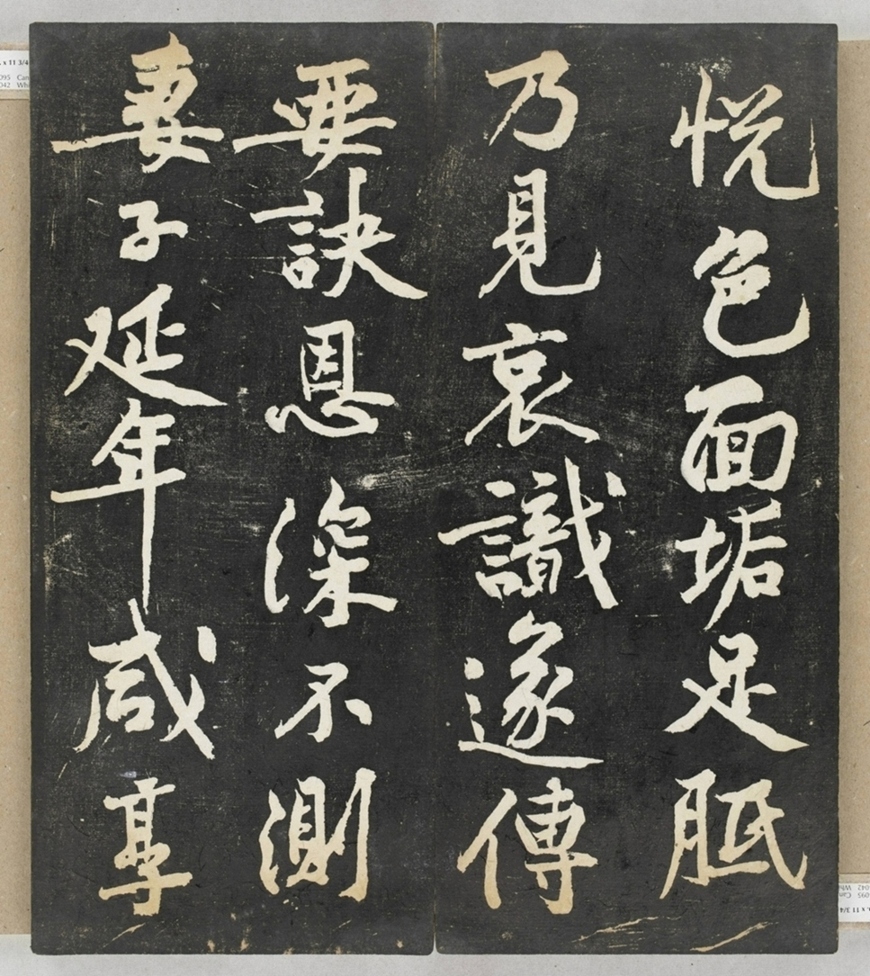 悅色面垢足胝
乃見哀識遂傳
要訣恩深不測
妻子延年咸享
x 11 3/4